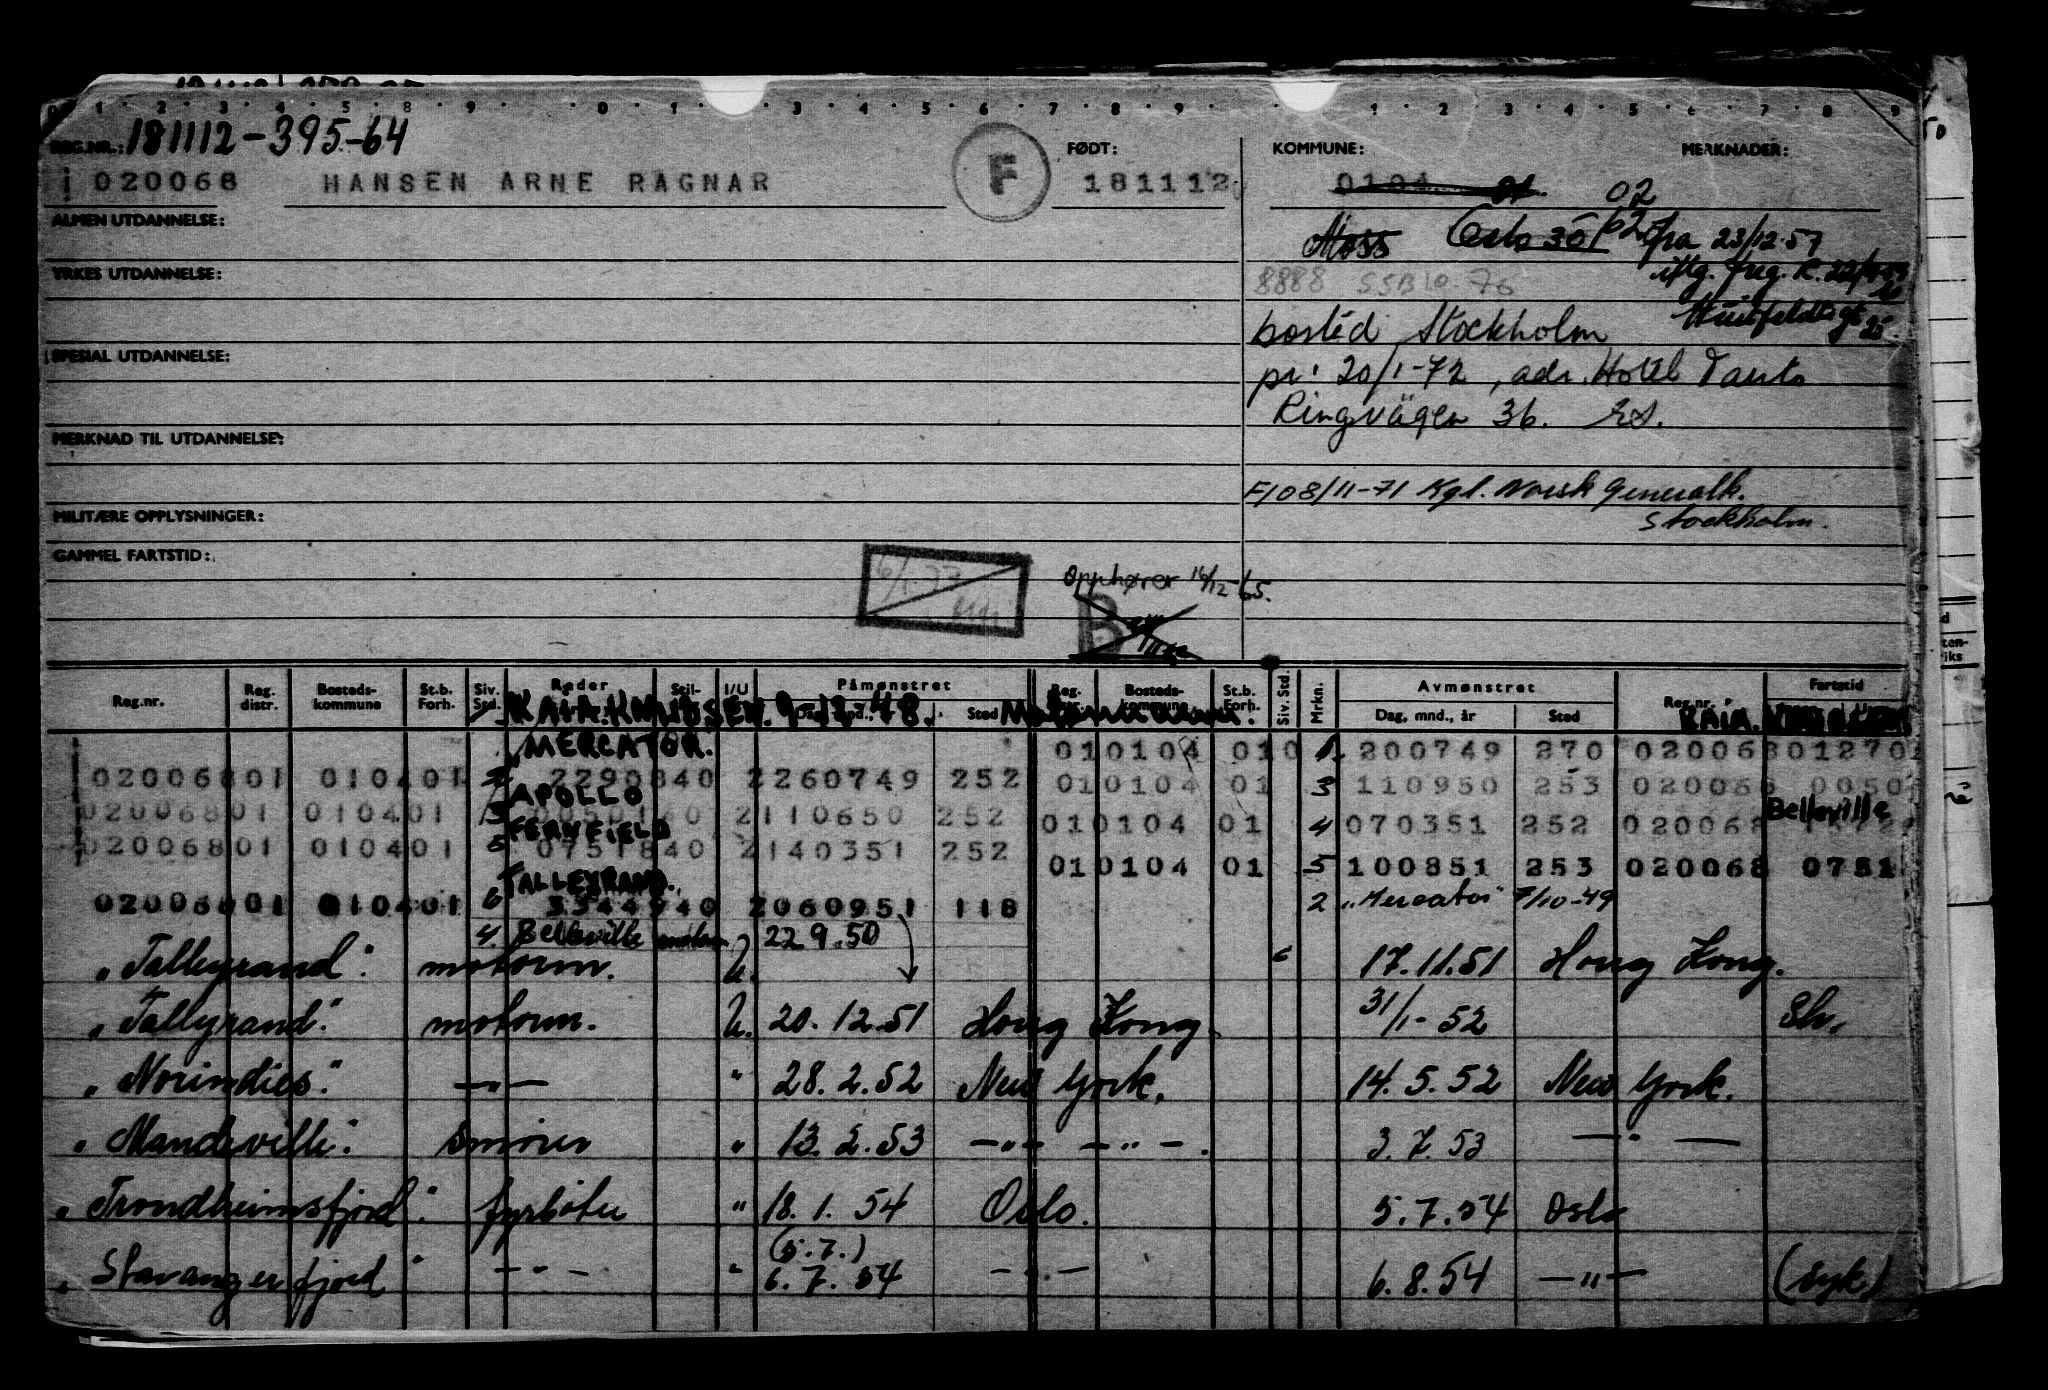 REG.NR.: 181112-395-64
020068 HANSEN ARNE RAGNAR
F
FØDT:
181112
KOMMUNE:
MERKNADER:
0104 02
Moss Oslo fra 23/12-57
8888 SSB 10-76
bosted Stockholm
pr. 20/1-72, adr. Hotel Tanto
Ringvägen 36.
F108/11-71 Kgl. Norsk Generalk.
Stockholm.
ALMEN UTDANNELSE:
YRKES UTDANNELSE:
SPESIAL UTDANNELSE:
MERKNAD TIL UTDANNELSE:
MILITÆRE OPPLYSNINGER:
GAMMEL FARTSTID:
6/1-77
Opphører 16/12-65.
B
Reg.nr. Reg. distr. Bosteds- kommune St.b. Forh. Siv. Std. Reder Stil- I/U Påmønstret Sted Reg. Bosteds- kommune St.b. Forh. Siv. Std. Mrkn. Avmønstret Dag, mnd., år Sted Reg.nr. Fartstid
KAIA KNUDSEN. 9-12-48. KAIA.
MERCATOR. 010104 010 1. 200749 270 020068 01270
02006801 010401 2 2290840 2260749 252 010104 01 3 110950 253 020068 0050
APOLLO Belleville
02006801 010401 3 2110650 252 010104 01 4 070351 252 020068
FERNFIELD
02006801 010401 5 0751840 2140351 252 010104 01 5 100851 253 020068 0751
TALLEYRAND.
02006801 010401 6 3344940 2060951 118 2 "Mercator" 7/10-49
4. Belleville motorm. 22.9.50
"Talleyrand". motorm. U. 17.11.51 Hong Kong.
"Tallyrand". motorm. U. 20.12.51 Hong Kong. 31/1-52
"Norindies". —"— " 28.2.52 New York. 14.5.52 New York.
"Mandeville". smører " 13.2.53 —"— —"—. 3.7.53 —"—
"Trondheimsfjord". fyrbøter " 18.1.54 Oslo. 5.7.54 Oslo
(5.7.)
"Stavangerfjord" —"— " 6.7.54 —"— 6.8.54 —"— (syk)